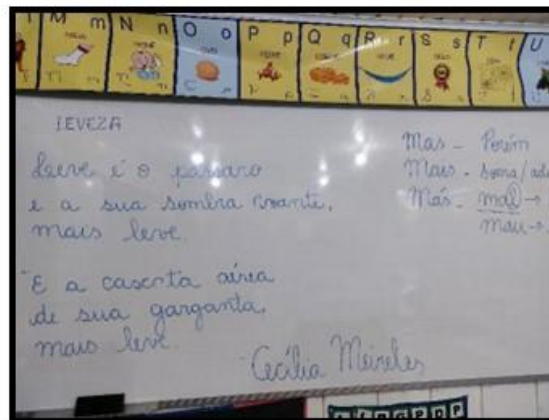 M m
N n
O o
P p
Q q
R r
S s
T t
U
LEVEZA
Leve é o pássaro
e a sua sombra voante,
mais leve.
E a cascata aérea
de sua garganta,
mais leve.
Cecília Meireles
Mas - Porém
Mais - Soma/
Más - mal →
mau →